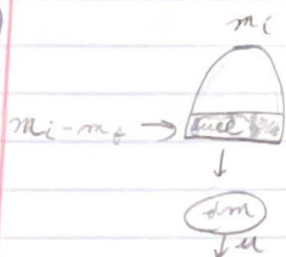 m_i
m_i - m_f → fuel
↓
dm
↓ u